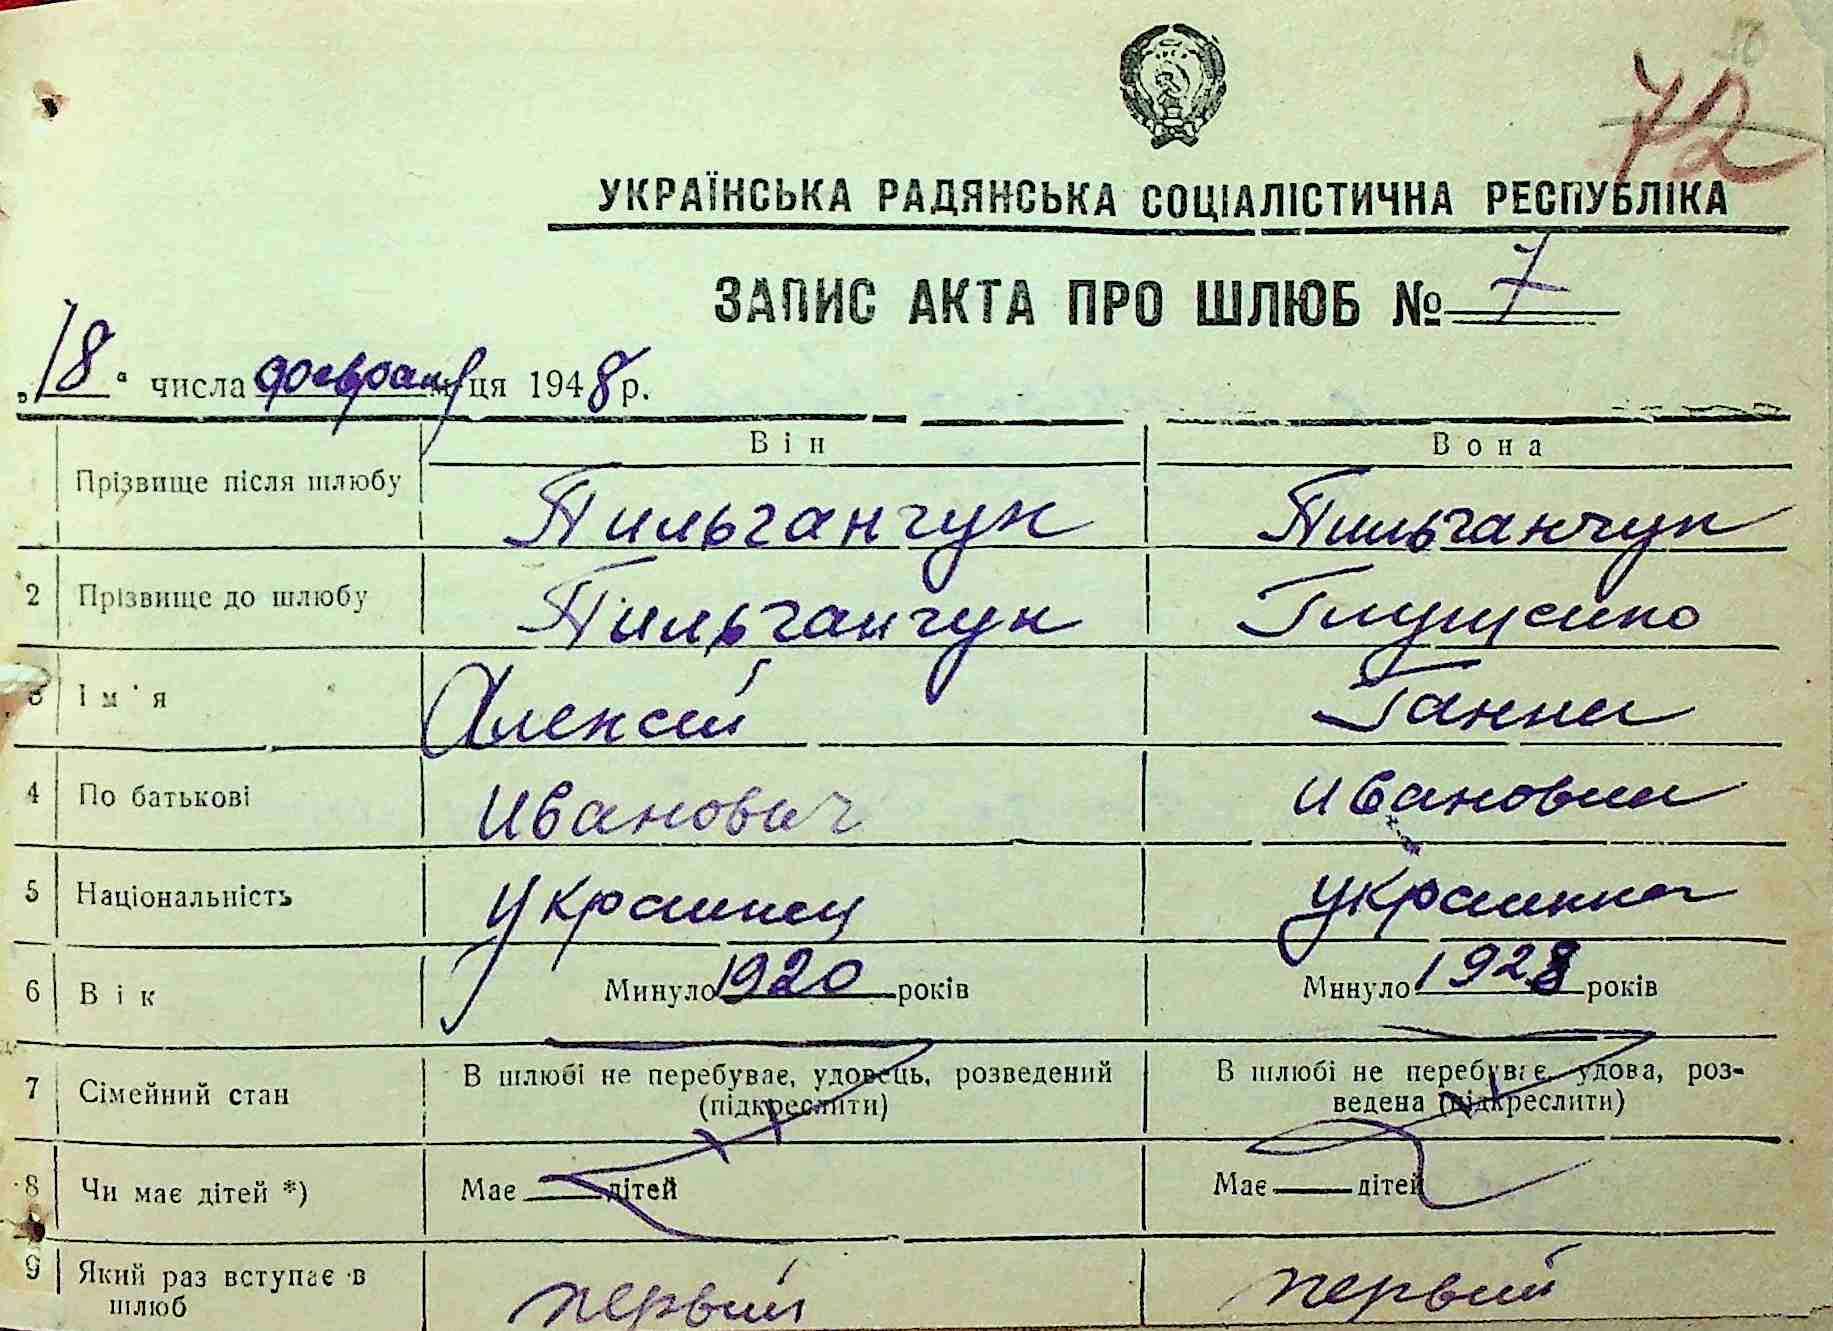 50
72
УКРАЇНСЬКА РАДЯНСЬКА СОЦІАЛІСТИЧНА РЕСПУБЛІКА
ЗАПИС АКТА ПРО ШЛЮБ № 7
„18“ числа февраля місяця 1948 р.
Він Вона
Прізвище після шлюбу Пильганчук Пильганчук
2 Прізвище до шлюбу Пильганчук Глущенко
3 Ім'я Алексей Ганна
4 По батькові Иванович Ивановна
5 Національність Украинец Украинка
6 Вік Минуло 1920 років Минуло 1928 років
7 Сімейний стан В шлюбі не перебуває, удовець, розведений (підкреслити) В шлюбі не перебуває, удова, роз-
ведена (підкреслити)
8 Чи має дітей *) Має дітей Має дітей
9 Який раз вступає в шлюб первый первый